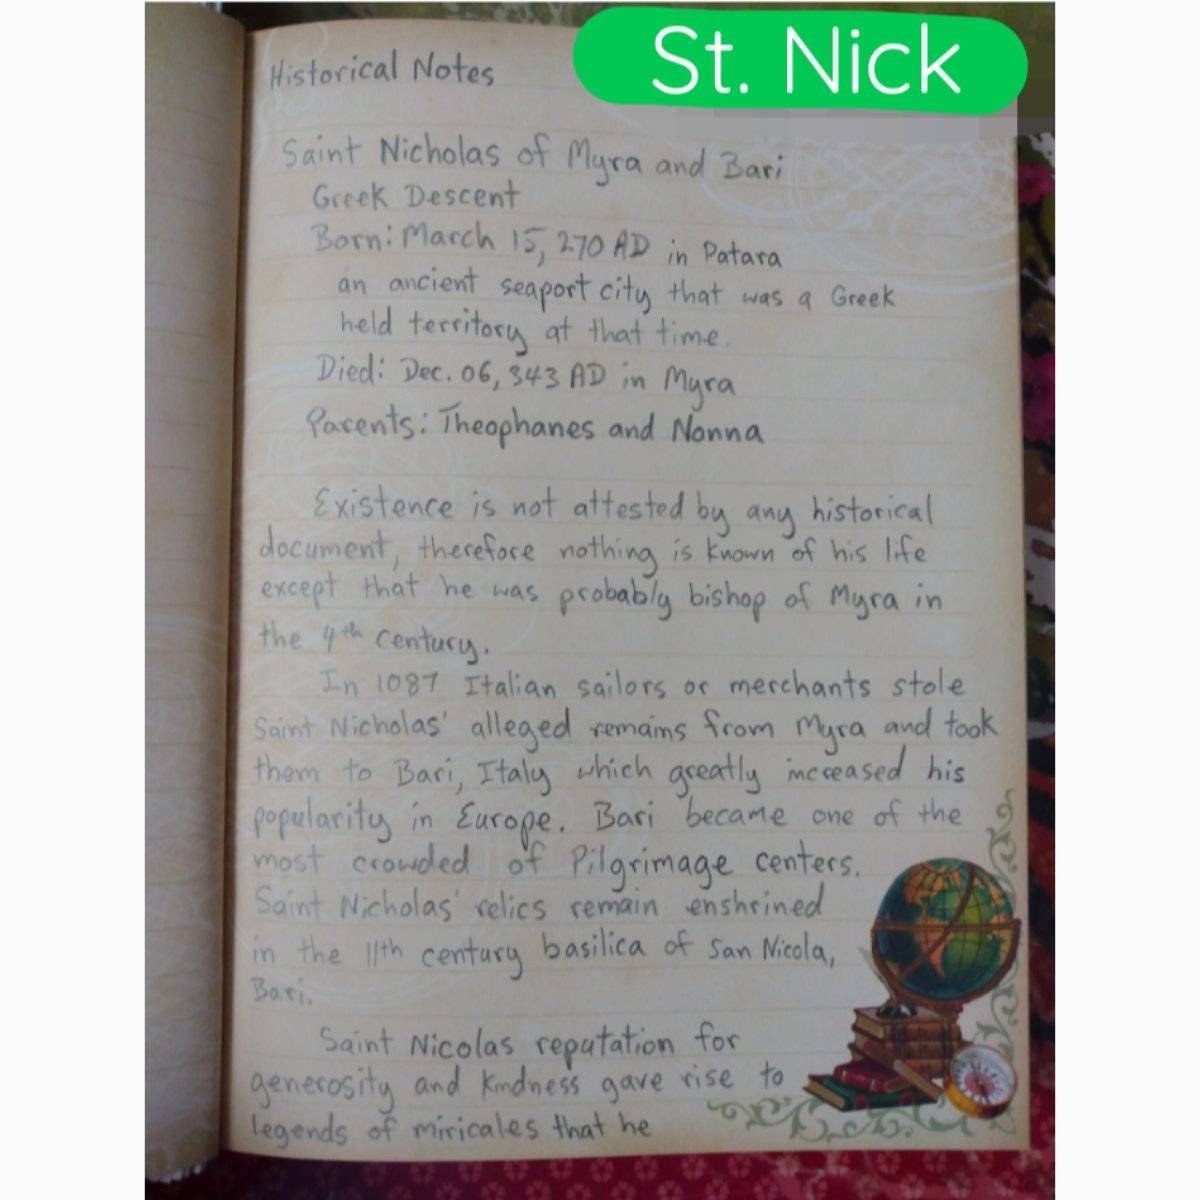 St. Nick
Historical Notes
Saint Nicholas of Myra and Bari
Greek Descent
Born: March 15, 270 AD in Patara
an ancient seaport city that was a Greek
held territory at that time.
Died: Dec. 06, 343 AD in Myra
Parents: Theophanes and Nonna
Existence is not attested by any historical
document, therefore nothing is known of his life
except that he was probably bishop of Myra in
the 4th century.
In 1087 Italian sailors or merchants stole
Saint Nicholas' alleged remains from Myra and took
them to Bari, Italy which greatly increased his
popularity in Europe. Bari became one of the
most crowded of Pilgrimage centers.
Saint Nicholas' relics remain enshrined
in the 11th century basilica of San Nicola,
Bari.
Saint Nicolas reputation for
generosity and kindness gave rise to
legends of miricales that he